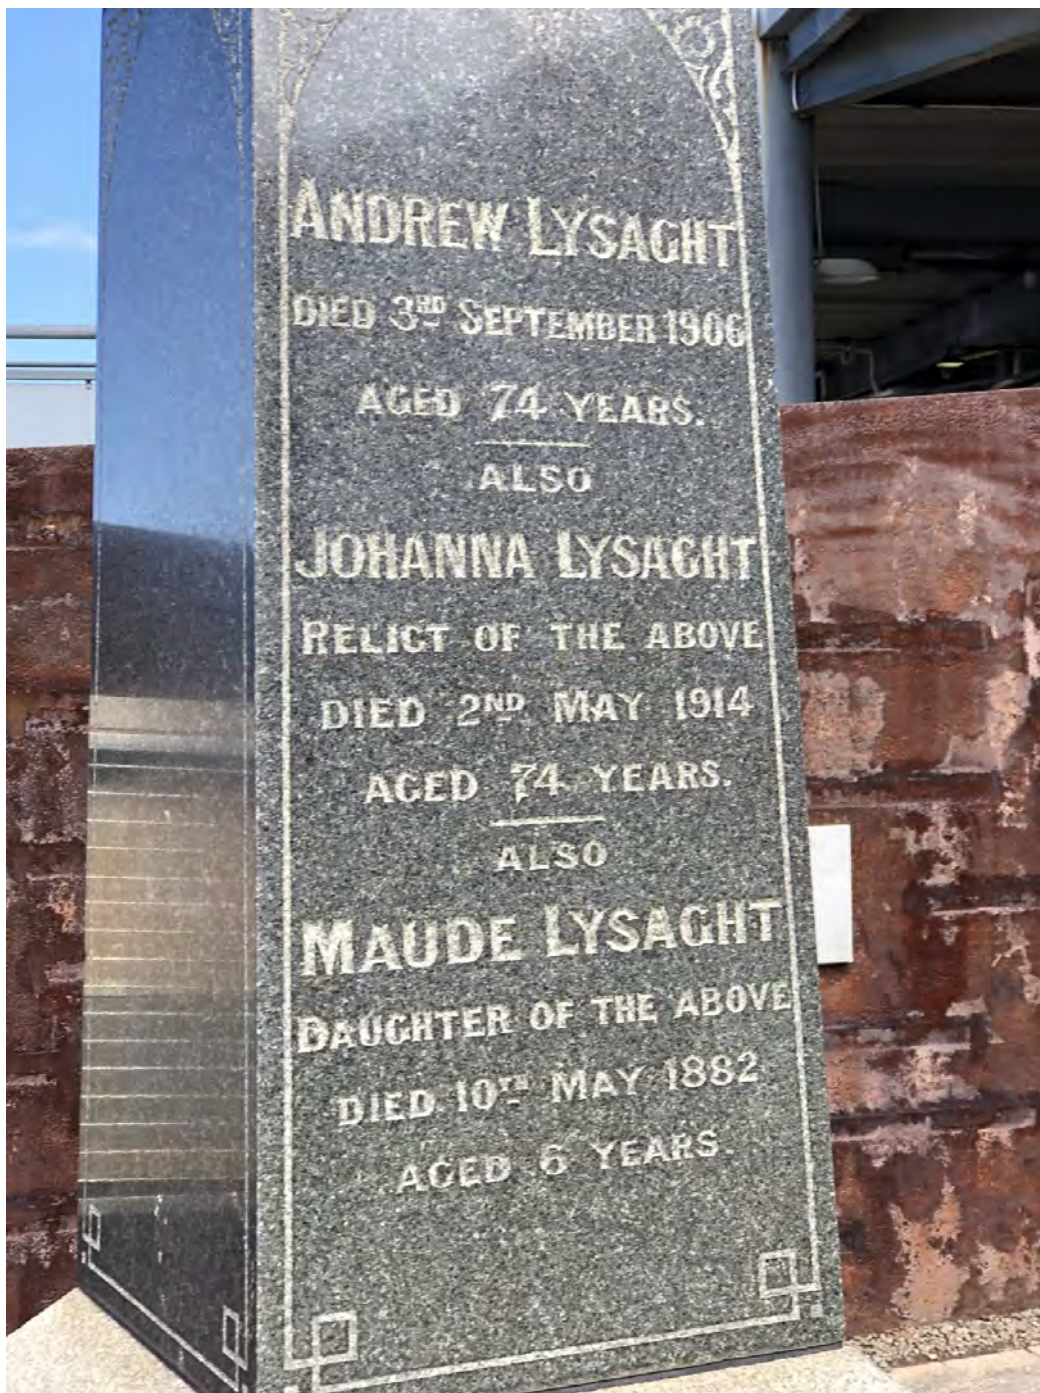 ANDREW LYSAGHT
DIED 3RD SEPTEMBER 1906
AGED 74 YEARS.
ALSO
JOHANNA LYSAGHT
RELICT OF THE ABOVE
DIED 2ND MAY 1914
AGED 74 YEARS.
ALSO
MAUDE LYSAGHT
DAUGHTER OF THE ABOVE
DIED 10TH MAY 1882
AGED 6 YEARS.